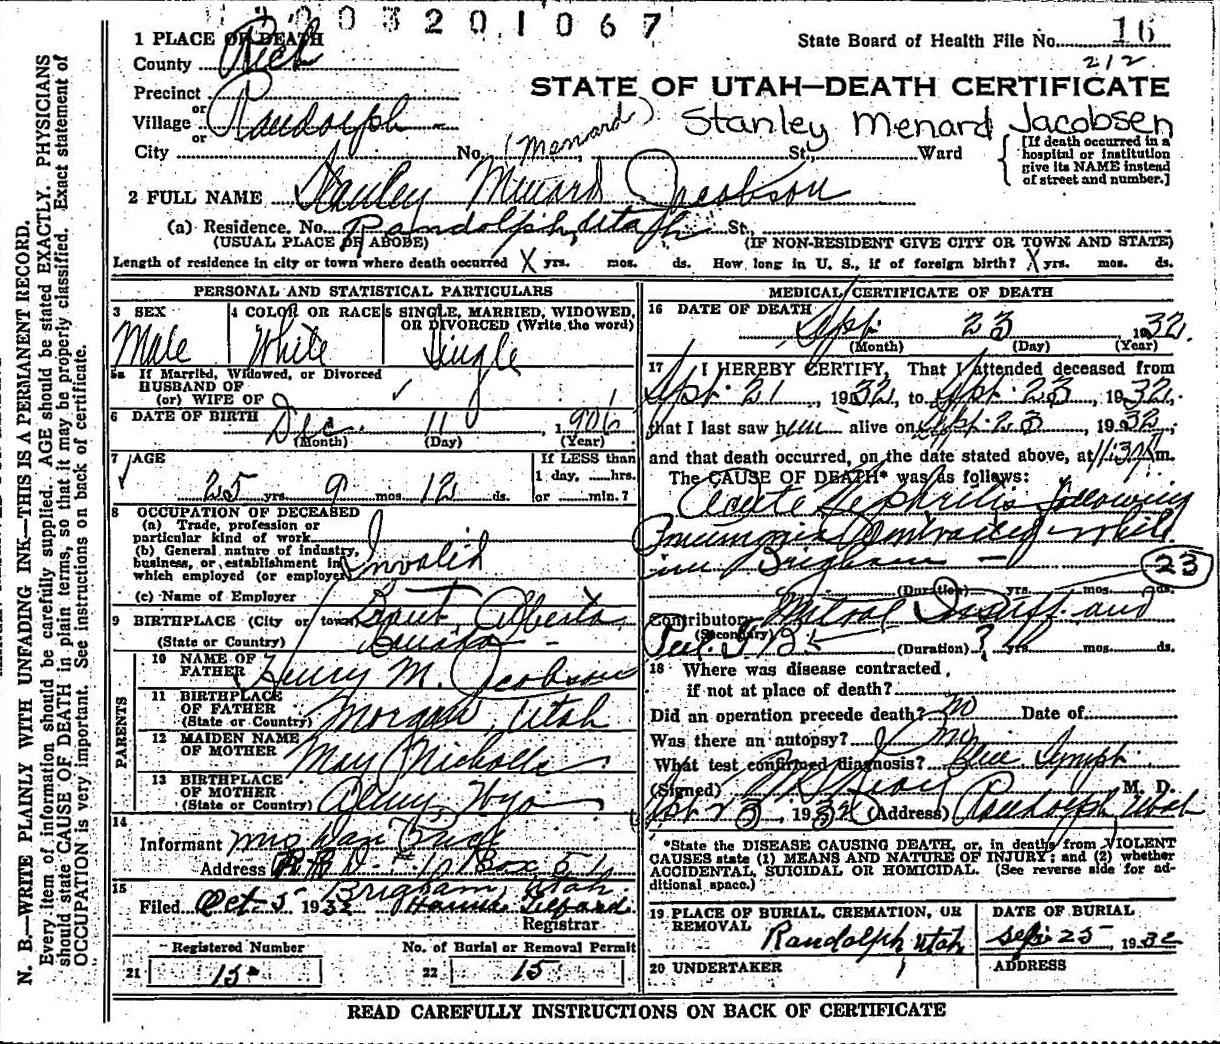 003201067
1 PLACE OF DEATH
County Rich
State Board of Health File No. 16
212
Precinct
or
Village Randolph
or
City No. St., Ward
STATE OF UTAH—DEATH CERTIFICATE
(Menard) Stanley Menard Jacobsen
[If death occurred in a hospital or institution give its NAME instead of street and number.]
2 FULL NAME Stanley Menard Jacobson
(a) Residence. No. Randolph, Utah St.,
(USUAL PLACE OF ABODE) (IF NON-RESIDENT GIVE CITY OR TOWN AND STATE)
Length of residence in city or town where death occurred X yrs. mos. ds. How long in U. S., if of foreign birth? X yrs. mos. ds.
PERSONAL AND STATISTICAL PARTICULARS
3 SEX Male
4 COLOR OR RACE White
5 SINGLE, MARRIED, WIDOWED, OR DIVORCED (Write the word) Single
5a If Married, Widowed, or Divorced
HUSBAND OF
(or) WIFE OF
6 DATE OF BIRTH Dec. 11, 1906
(Month) (Day) (Year)
7 AGE
25 yrs. 9 mos. 12 ds.
If LESS than
1 day, hrs.
or min.?
8 OCCUPATION OF DECEASED
(a) Trade, profession or
particular kind of work
(b) General nature of industry,
business, or establishment in
which employed (or employer) Invalid
(c) Name of Employer
9 BIRTHPLACE (City or town) Alberta
(State or Country)
PARENTS
10 NAME OF FATHER Henry M. Jacobson
11 BIRTHPLACE OF FATHER (State or Country) Morgan, Utah
12 MAIDEN NAME OF MOTHER May Nicholls
13 BIRTHPLACE OF MOTHER (State or Country) Wyo
14
Informant Mrs Dan
Address Box 51
Brigham, Utah
15
Filed Oct 5 1932
Registrar
Registered Number No. of Burial or Removal Permit
21 15 22 15
MEDICAL CERTIFICATE OF DEATH
16 DATE OF DEATH
Sept. 23 1932
(Month) (Day) (Year)
17 I HEREBY CERTIFY, That I attended deceased from
Sept. 21, 1932, to Sept. 23, 1932,
that I last saw him alive on Sept. 23, 1932,
and that death occurred, on the date stated above, at m.
The CAUSE OF DEATH* was as follows:
Acute Nephritis following
Pneumonia Contracted while
in Brigham —
23
(Duration) yrs. mos. ds.
Contributory Mitral Insuff. and
(Secondary)
(Duration) ? yrs. mos. ds.
18 Where was disease contracted,
if not at place of death?
Did an operation precede death? no Date of
Was there an autopsy? no
What test confirmed diagnosis?
(Signed) M. D.
Sept 23, 1932 (Address) Randolph, Utah
*State the DISEASE CAUSING DEATH, or, in deaths from VIOLENT
CAUSES state (1) MEANS AND NATURE OF INJURY; and (2) whether
ACCIDENTAL, SUICIDAL OR HOMICIDAL. (See reverse side for ad-
ditional space.)
19 PLACE OF BURIAL, CREMATION, OR REMOVAL Randolph, Utah
DATE OF BURIAL Sep. 25, 1932
20 UNDERTAKER
ADDRESS
READ CAREFULLY INSTRUCTIONS ON BACK OF CERTIFICATE
N. B.—WRITE PLAINLY WITH UNFADING INK—THIS IS A PERMANENT RECORD.
Every item of information should be carefully supplied. AGE should be stated EXACTLY. PHYSICIANS
should state CAUSE OF DEATH in plain terms, so that it may be properly classified. Exact statement of
OCCUPATION is very important. See instructions on back of certificate.